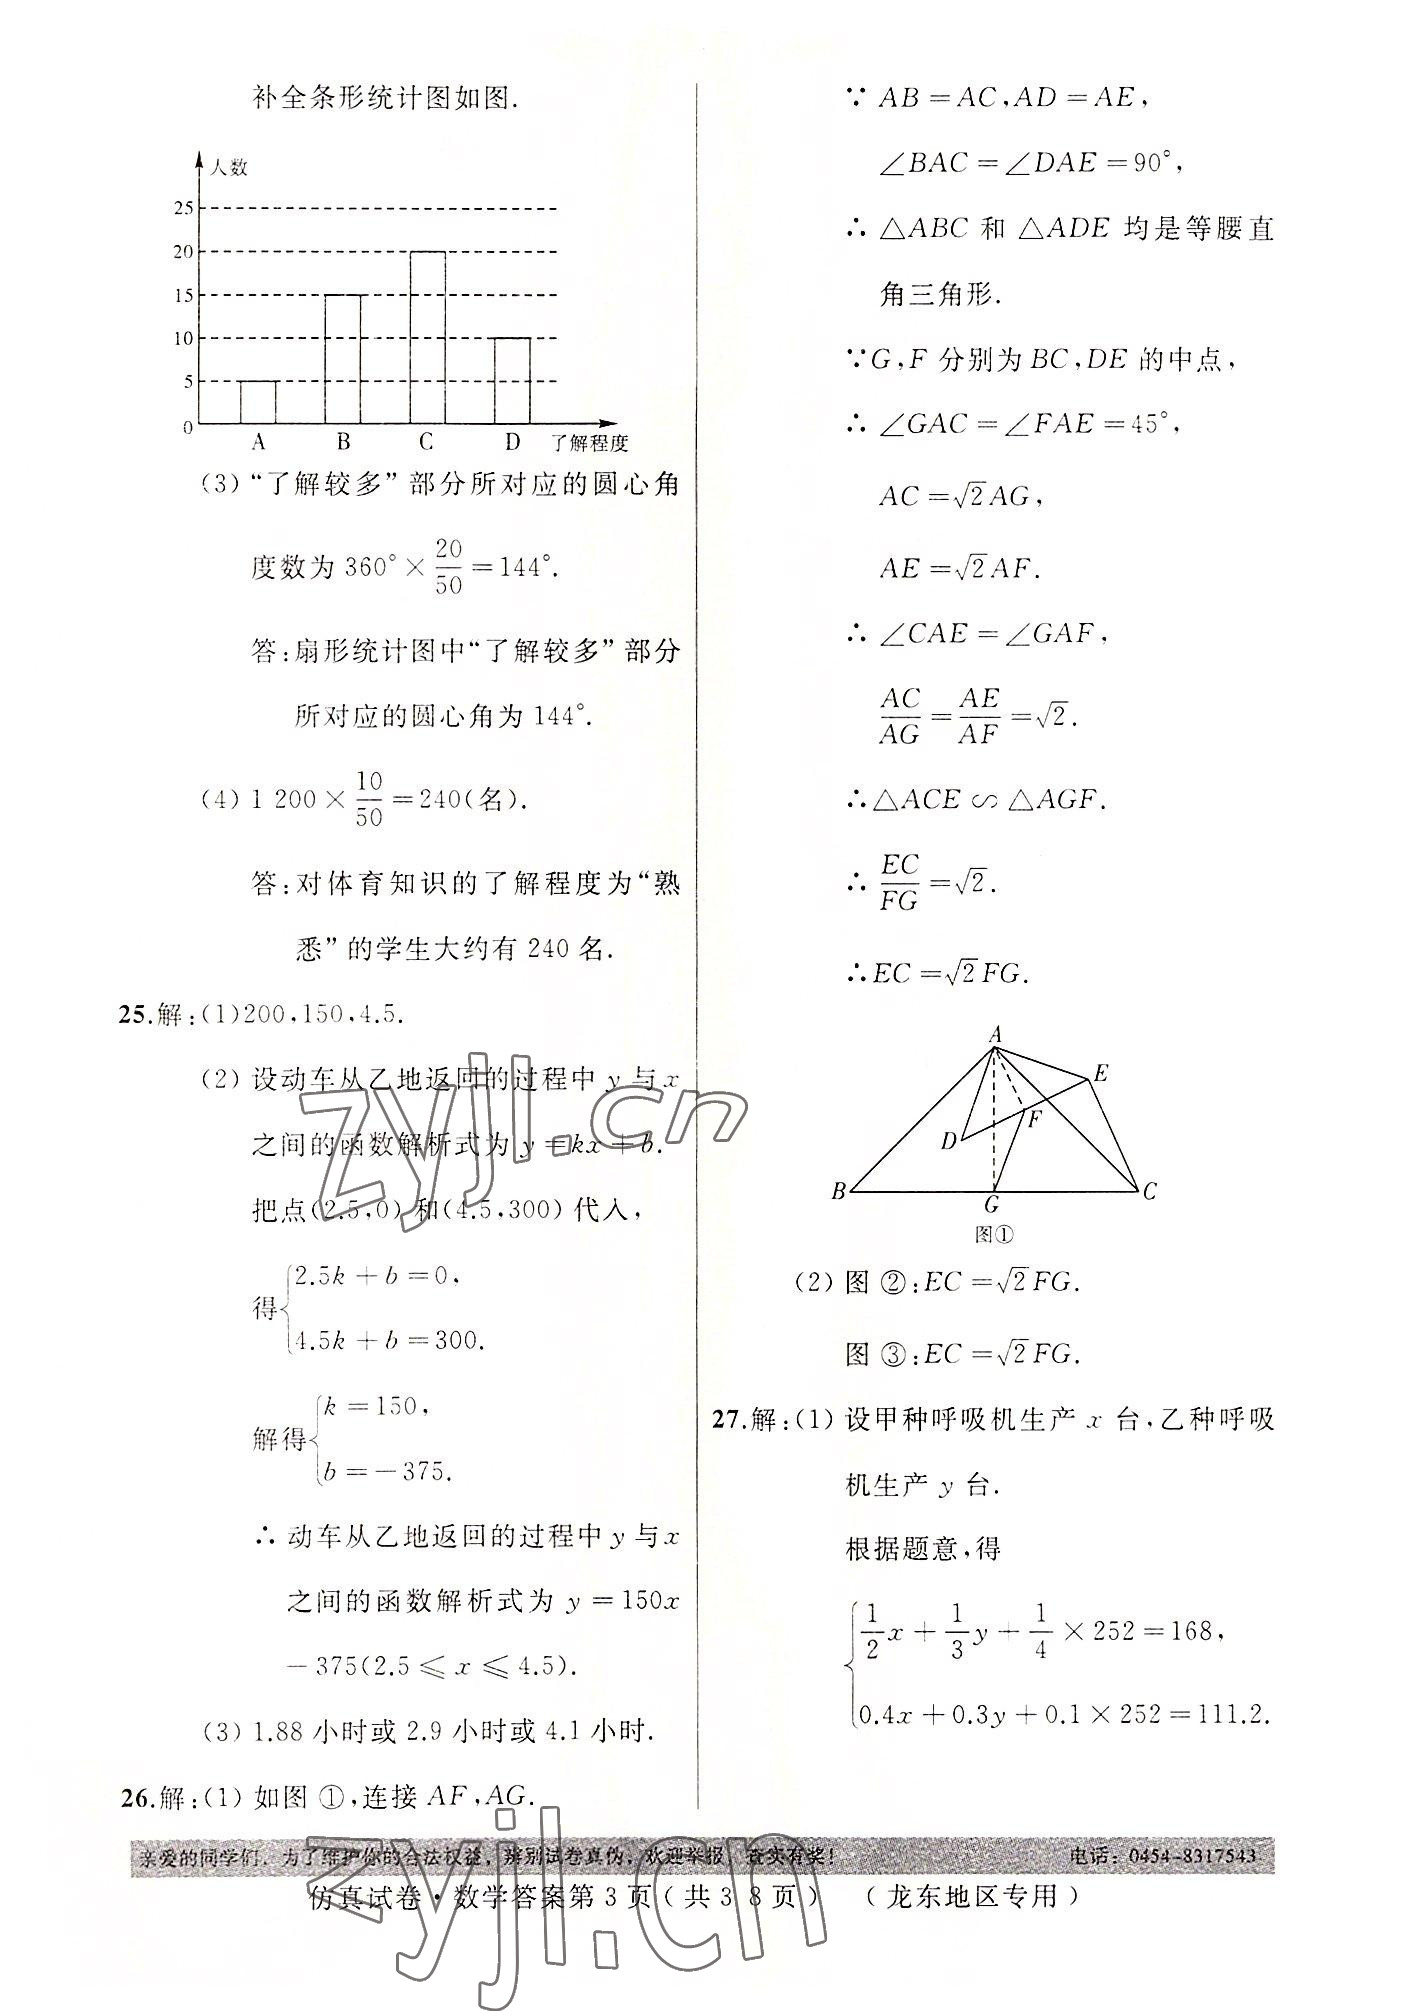 补全条形统计图如图.
人数
25
20
15
10
5
0
A B C D 了解程度
(3) “了解较多” 部分所对应的圆心角
度数为 360° × 20/50 = 144°.
答:扇形统计图中“了解较多”部分
所对应的圆心角为 144°.
(4) 1 200 × 10/50 = 240(名).
答:对体育知识的了解程度为“熟
悉”的学生大约有 240 名.
25.解:(1)200,150,4.5.
(2) 设动车从乙地返回的过程中 y 与 x
之间的函数解析式为 y = kx + b.
把点(2.5,0) 和(4.5,300) 代入,
得{2.5k + b = 0,
4.5k + b = 300.
解得{k = 150,
b = - 375.
∴ 动车从乙地返回的过程中 y 与 x
之间的函数解析式为 y = 150x
- 375(2.5 ≤ x ≤ 4.5).
(3) 1.88 小时或 2.9 小时或 4.1 小时.
26.解:(1) 如图 ①,连接 AF,AG.
∵ AB = AC,AD = AE,
∠BAC = ∠DAE = 90°,
∴ △ABC 和 △ADE 均是等腰直
角三角形.
∵G,F 分别为 BC,DE 的中点,
∴ ∠GAC = ∠FAE = 45°,
AC = √2AG,
AE = √2AF.
∴ ∠CAE = ∠GAF,
AC/AG = AE/AF = √2.
∴△ACE ∽ △AGF.
∴ EC/FG = √2.
∴EC = √2FG.
A
E
F
D
B G C
图①
(2) 图 ②:EC = √2FG.
图 ③:EC = √2FG.
27.解:(1) 设甲种呼吸机生产 x 台,乙种呼吸
机生产 y 台.
根据题意,得
{1/2x + 1/3y + 1/4 × 252 = 168,
0.4x + 0.3y + 0.1 × 252 = 111.2.
zyjl.cn
zyjl.cn
亲爱的同学们,为了维护你的合法权益,辨别试卷真伪,欢迎举报,查实有奖! 电话:0454-8317543
仿真试卷·数学答案第3页(共38页) (龙东地区专用)